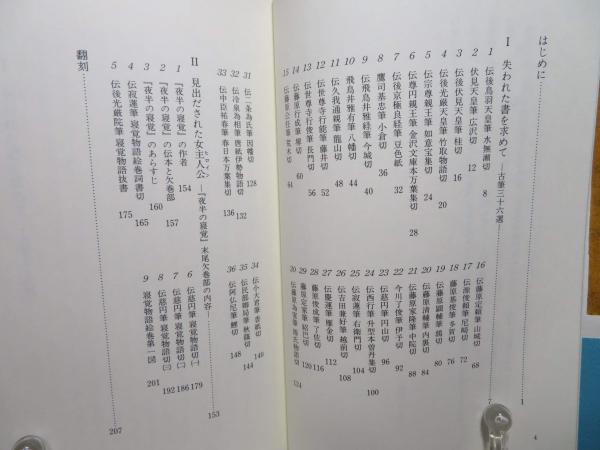 はじめに 1
I 失われた書を求めて—古筆三十六選 7
1 伝後鳥羽天皇筆 水無瀬切 8
2 伏見天皇筆 広沢切 12
3 伝後伏見天皇筆 桂切 16
4 伝後光厳天皇筆 竹取物語切 20
5 伝宗尊親王筆 如意宝集切 24
6 伝尊円親王筆 金沢文庫本万葉集切 28
7 伝後京極良経筆 豆色紙 32
8 鷹司基忠筆 小倉切 36
9 伝飛鳥井雅経筆 今城切 40
10 飛鳥井雅有筆 八幡切 44
11 伝久我通親筆 龍山切 48
12 伝世尊寺行能筆 藤井切 52
13 伝世尊寺行俊筆 長門切 56
14 伝藤原行成筆 塚切 60
15 伝藤原公任筆 荒木切 64
16 伝藤原定頼筆 山城切 68
17 伝源俊頼筆 尼崎切 72
18 藤原基俊筆 多賀切 76
19 伝藤原顕輔筆 鶉切 80
20 伝藤原清輔筆 内裏切 84
21 伝藤原家隆筆 中院切 88
22 今川了俊筆 伊予切 92
23 伝慈円筆 円山切 96
24 伝西行筆 升型本曽丹集切 100
25 伝寂蓮筆 右衛門切 104
26 伝吉田兼好筆 越前切 108
27 伝慶運筆 雁金切 112
28 藤原俊成筆 了佐切 116
29 藤原定家筆 紹巴切 120
30 伝藤原為家筆 源氏物語切 124
31 伝二条為氏筆 因幡切 128
32 伝冷泉為相筆 唐紙伊勢物語切 132
33 伝中臣祐春筆 春日本万葉集切 136
34 伝小大君筆 香紙切 140
35 伝民部卿局筆 秋篠切 144
36 伝阿仏尼筆 鯉切 148
II 見出だされた女主人公—『夜半の寝覚』末尾欠巻部の内容— 153
1 『夜半の寝覚』の作者 154
2 『夜半の寝覚』の伝本と欠巻部 157
3 『夜半の寝覚』のあらすじ 160
4 伝寂蓮筆 寝覚物語絵巻詞書切 165
5 伝後光厳院筆 寝覚物語抜書 175
6 伝慈円筆 寝覚物語切(一) 179
7 伝慈円筆 寝覚物語切(二) 186
8 伝慈円筆 寝覚物語切(三) 192
9 寝覚物語絵巻第一図 201
翻刻 207
4